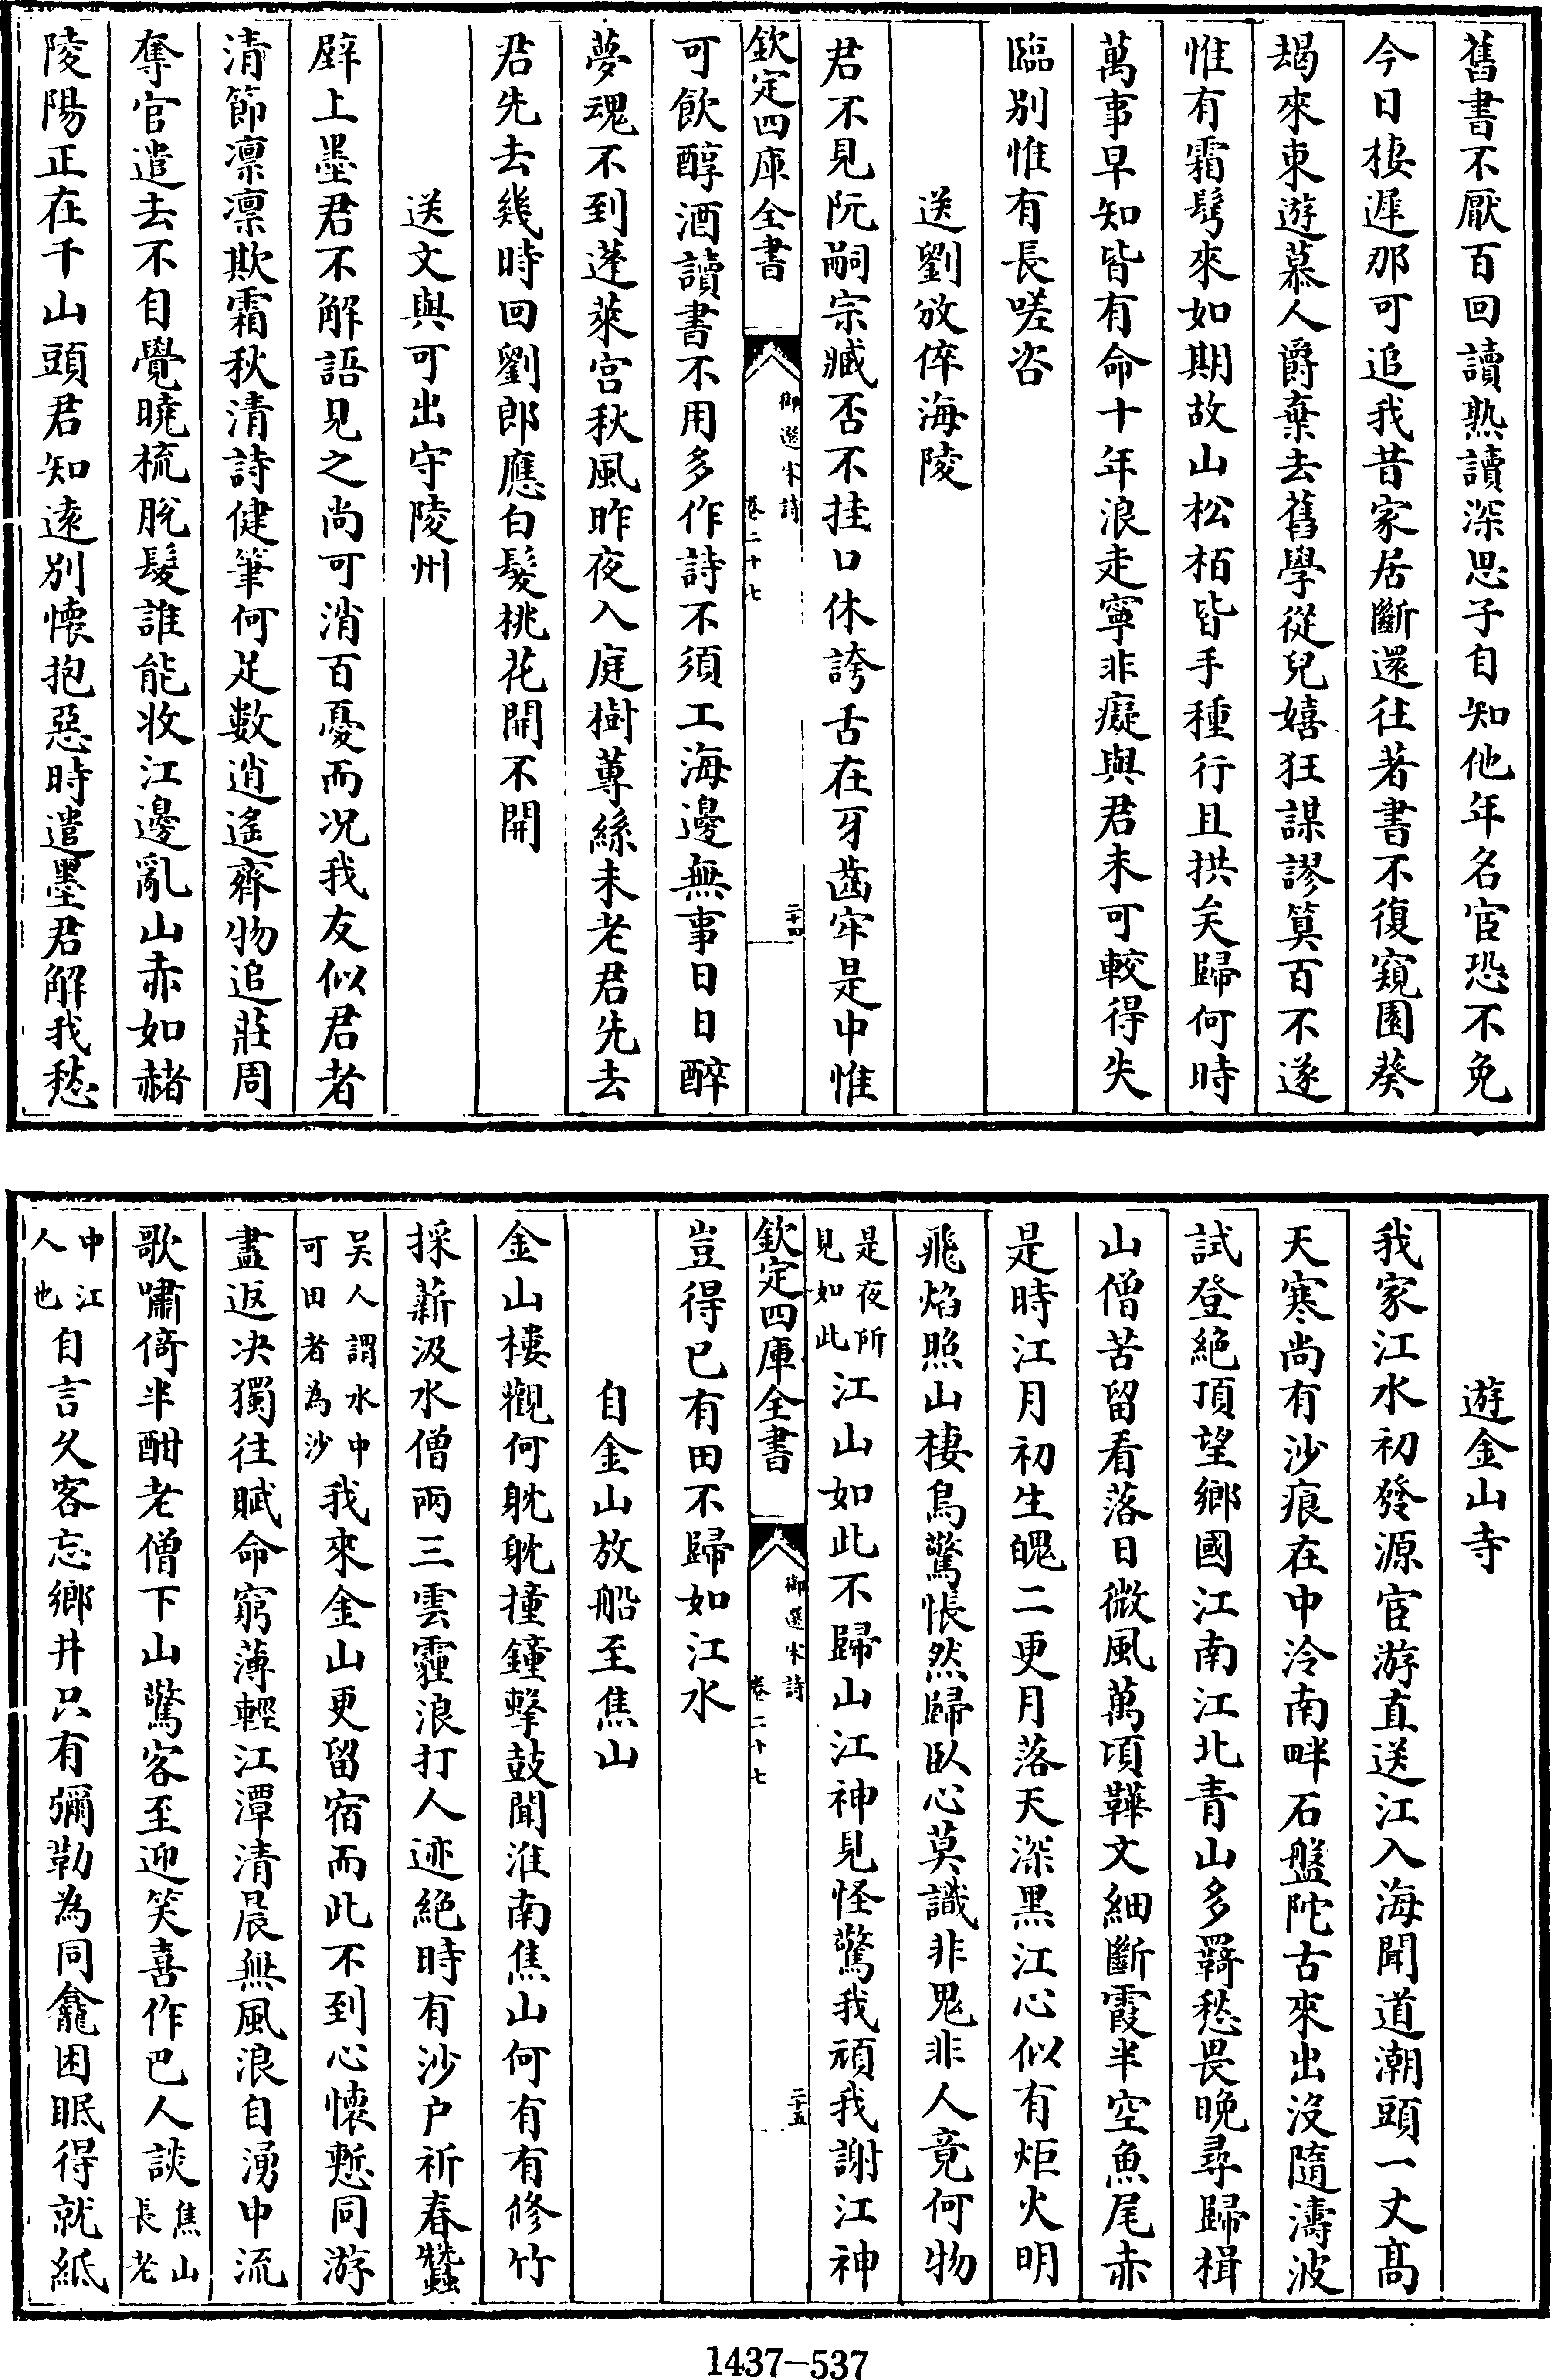 舊書不厭百回讀熟讀深思子自知他年名宦恐不免
今日棲遲那可追我昔家居斷還往著書不復窺園葵
朅來東遊慕人爵棄去舊學從兒嬉狂謀謬算百不遂
惟有霜鬢來如期故山松栢皆手種行且拱矣歸何時
萬事早知皆有命十年浪走寧非癡與君未可較得失
臨別惟有長嗟咨
送劉攽倅海陵
君不見阮嗣宗臧否不挂口休誇舌在牙齒牢是中惟
欽定四庫全書
御選宋詩
卷二十七
二十四
可飲醇酒讀書不用多作詩不須工海邊無事日日醉
夢魂不到蓬萊宮秋風昨夜入庭樹蓴絲未老君先去
君先去幾時回劉郎應白髮桃花開不開
送文與可出守陵州
壁上墨君不解語見之尚可消百憂而况我友似君者
清節凛凛欺霜秋清詩健筆何足數逍遙齊物追莊周
奪官遣去不自覺曉梳脫髮誰能收江邊亂山赤如赭
陵陽正在千山頭君知遠別懷抱惡時遣墨君解我愁
遊金山寺
我家江水初發源宦游直送江入海聞道潮頭一丈高
天寒尚有沙痕在中泠南畔石盤陀古來出沒隨濤波
試登絕頂望鄉國江南江北青山多羇愁畏晚尋歸楫
山僧苦留看落日微風萬頃鞾文細斷霞半空魚尾赤
是時江月初生魄二更月落天深黑江心似有炬火明
飛焰照山棲鳥驚悵然歸臥心莫識非鬼非人竟何物
是夜所
見如此
江山如此不歸山江神見怪驚我頑我謝江神
欽定四庫全書
御選宋詩
卷二十七
二十五
豈得已有田不歸如江水
自金山放船至焦山
金山樓觀何眈眈撞鐘擊鼓聞淮南焦山何有有修竹
採薪汲水僧兩三雲霾浪打人迹絕時有沙户祈春蠶
吴人謂水中
可田者為沙
我來金山更留宿而此不到心懷慙同游
盡返决獨往賦命窮薄輕江潭清晨無風浪自湧中流
歌嘯倚半酣老僧下山驚客至迎笑喜作巴人談
焦山
長老
中江
人也
自言久客忘鄉井只有彌勒為同龕困眠得就紙
1437-537